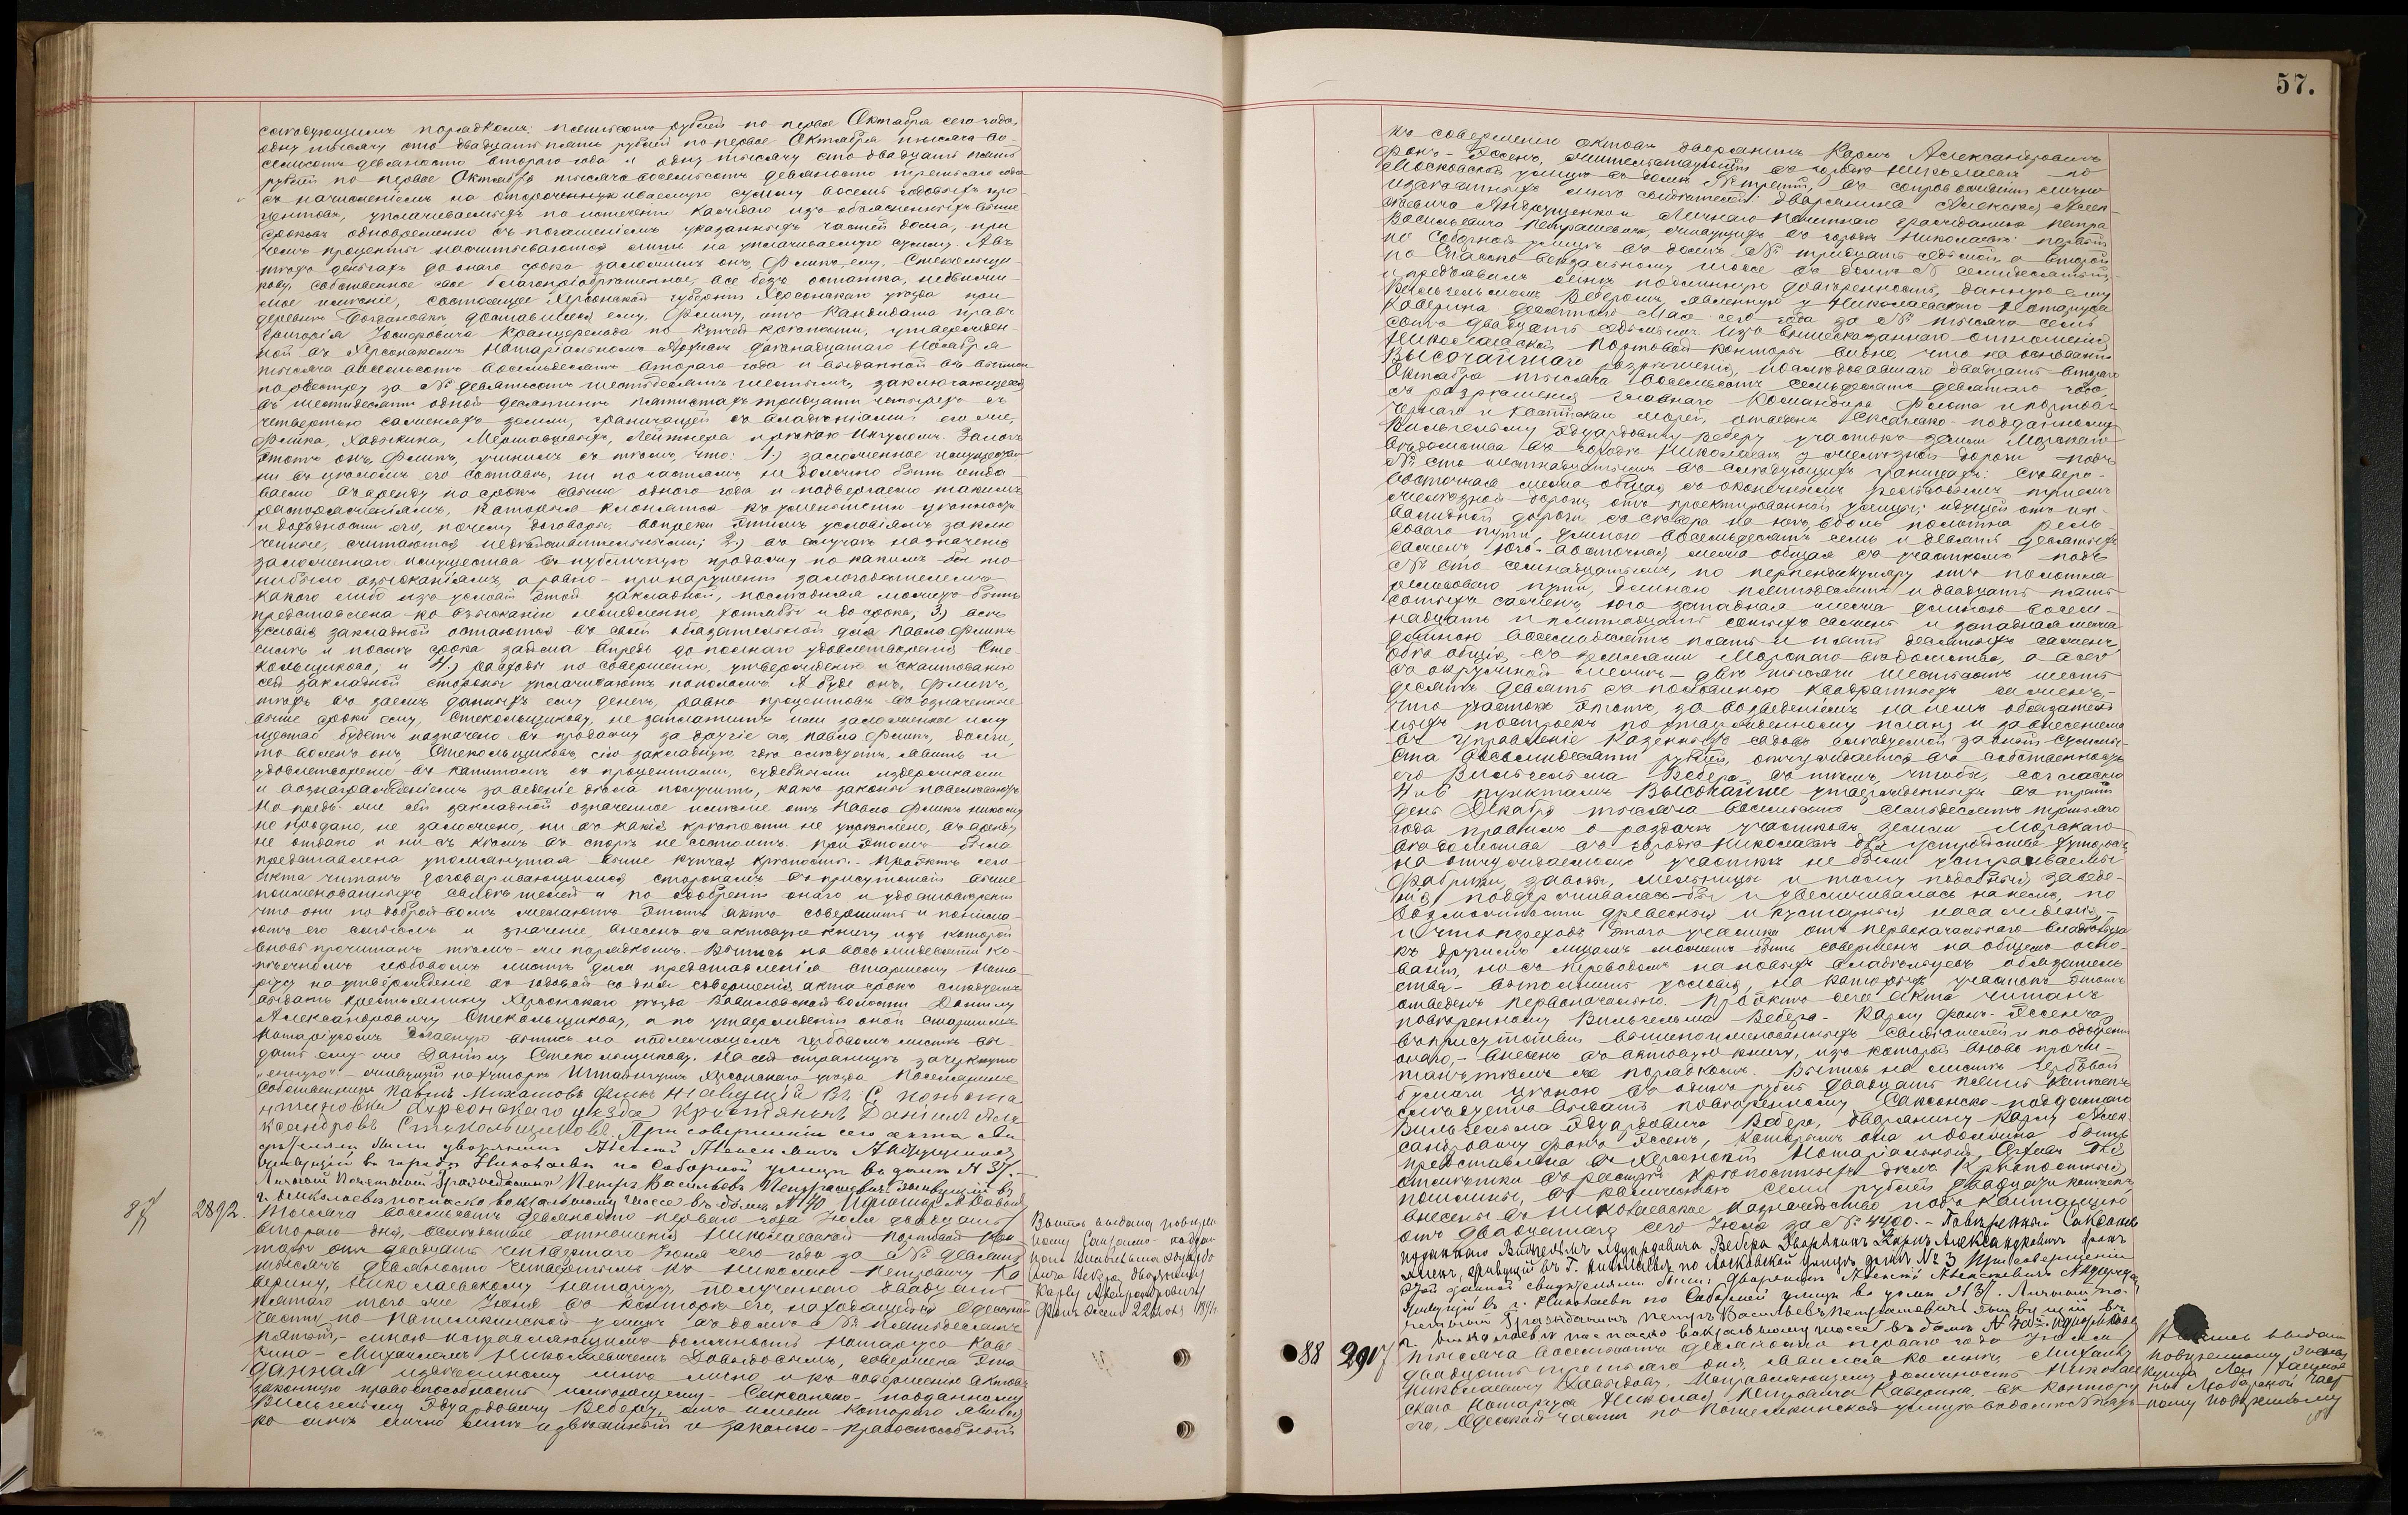 следующимъ порядкомъ: пятьсотъ рублей по первое Октября сего года,
одну тысячу сто двадцать пять рублей по первое Октября тысяча во-
семьсотъ девяносто втораго года и одну тысячу сто двадцать пять
рублей по первое Октября тысяча восемьсотъ девяносто третьяго года
съ начисленіемъ на отсроченную сумму восемь годовыхъ про-
центовъ, уплачиваемыхъ по истеченіи каждаго изъ объясненныхъ выше
сроковъ одновременно съ погашеніемъ указанныхъ частей долга, при
чемъ проценты насчитываются лишь на уплачиваемую сумму. А въ
тѣхъ деньгахъ до онаго срока заложилъ онъ, Флинкъ, ему, Стекольщи-
кову, собственное свое благопріобрѣтенное, все безъ остатка, недвижи-
мое имѣніе, состоящее Херсонской губерніи Херсонскаго уѣзда при
деревнѣ Богдановкѣ, доставшееся ему, Флинку, отъ Кандидата правъ
Григорія Іосифовича по купчей крѣпости, утвержден-
ной въ Херсонскомъ Нотаріальномъ Архивѣ двѣнадцатаго Ноября
тысяча восемьсотъ восемьдесятъ втораго года и выданной въ выписи
по реестру за № девятьсотъ шестьдесятъ шестымъ, заключающееся
въ шестидесяти одной десятинѣ пятистахъ тридцати четырехъ съ
четвертью саженяхъ земли, граничащей съ владѣніями его же,
Флинка, Хадыкина, Лейтнера и рѣкою Ингуломъ. Залогъ
этотъ онъ, Флинкъ, учинилъ съ тѣмъ, что: 1.) заложенное имущество
ни въ цѣломъ его составѣ, ни по частямъ, не должно быть отда-
ваемо въ аренду на срокъ свыше одного года и подвергаемо такимъ
распоряженіямъ, которыя клонятся къ уменьшенію цѣнности
и доходности его, почему договоры, вопреки этимъ условіямъ заклю-
ченные, считаются недѣйствительными; 2.) въ случаѣ назначенія
заложеннаго имущества въ публичную продажу по какимъ бы то
ни было взысканіямъ, а равно - при нарушеніи залогодателемъ
какого либо изъ условій этой закладной, послѣдняя можетъ быть
представлена ко взысканію немедленно, хотя бы и до срока; 3.) всѣ
условія закладной остаются въ своей обязательной для Павла Флинкъ
силѣ и послѣ срока займа впредь до полнаго удовлетворенія Сте-
кольщикова; и 4.) расходы по совершенію, утвержденію и окончанію
сей закладной стороны уплачиваютъ пополамъ. А буде онъ, Флинкъ,
тѣхъ въ заемъ данныхъ ему денегъ, равно процентовъ въ означенные
выше сроки ему, Стекольщикову, не заплатитъ или заложенное иму-
щество будетъ назначено въ продажу за другіе его, Павла Флинкъ, долги,
то воленъ онъ, Стекольщиковъ, сію закладную, гдѣ слѣдуетъ, явить и
удовлетвореніе въ капиталѣ съ процентами, судебными издержками
и вознагражденіемъ за веденіе дѣла получить, какъ законы повелѣваютъ.
Но предъ-же сей закладной означенное имѣніе отъ Павла Флинкъ никому
не продано, не заложено, ни въ какія крѣпости не укрѣплено, въ аренду
не отдано и ни съ кѣмъ въ спорѣ не состоитъ. При этомъ была
представлена упомянутая выше купчая крѣпость. Проектъ сего
акта читанъ договаривающимся сторонамъ въ присутствіи выше
поименованныхъ свидѣтелей и по одобреніи онаго и удостовѣреніи
что они по доброй волѣ желаютъ этотъ актъ совершить и понима-
ютъ его смыслъ и значеніе, внесенъ въ актовую книгу изъ которой
вновь прочитанъ тѣмъ-же порядкомъ. Выпись на восьмидесяти ко-
пѣечномъ гербовомъ листѣ для представленія старшему Нота-
ріусу на утвержденіе въ годовой со дня совершенія акта срокъ слѣдуетъ
выдать крестьянину Херсонскаго уѣзда волости Данилу
Александровичу Стекольщикову, а по утвержденіи оной старшимъ
Нотаріусомъ главную выпись на надлежащемъ гербовомъ листѣ вы-
дать ему-же Данилу Стекольщикову. На сей страницѣ зачеркнуто
- живущій на хуторѣ Херсонскаго уѣзда поселянинъ
собственникъ Павелъ Михайловъ Флинкъ Живущій Въ С. Константи-
новки Херсонскаго уѣзда крестьянинъ Даніилъ Але-
ксандровъ Стекольщиковъ. При совершеніи сего акта сви-
дѣтелями были дворянинъ Алексѣй Алексѣевичъ Андрущенко,
живущій въ городѣ Николаевѣ по Соборной улицѣ въ домѣ № 37.
Личный Почетный Гражданинъ Петръ Васильевъ Петрашевичъ живущій въ
г. Николаевѣ по спаско вокзальному шоссе въ домѣ № 70.
87
2892.
Тысяча восемьсотъ девяносто перваго года Іюля двадцать
втораго дня, вслѣдствіе отношенія Николаевской портовой Кон-
торы отъ двадцать четвертаго Іюня сего года за № девять
тысячъ девяносто четвертымъ къ Николаю Петровичу Ка-
верину, Николаевскому Нотаріусу, полученнаго двадцать
пятаго того же Іюня въ контору его, находящуюся Одесской
части по Потемкинской улицѣ въ домѣ № пятьдесятъ
пятый, - мною исправляющимъ должность Нотаріуса Каве-
рина - Михаиломъ Николаевичемъ Давыдовымъ, совершена эта
данная извѣстному мнѣ лично и къ совершенію актовъ
законную правоспособность имѣющему - Саксонско-подданному
Вильгельму Эдуардовичу Веберу, отъ имени котораго явился
ко мнѣ лично мнѣ извѣстный и законно-правоспособный
Выпись выдана повѣрен-
ному Саксонско поддан-
наго Вильгельма Эдуардо-
вича Вебера дворянину
Карлу Александровичу
фонъ Эссенъ 22 Іюля 1891 г.
57.
къ совершенію актовъ дворянинъ Карлъ Александровичъ
Фонъ-Эссенъ, жительствующій въ городѣ Николаевѣ по
Московской улицѣ въ домѣ № третій, въ сопровожденіи лично
извѣстныхъ мнѣ свидѣтелей: дворянина Алексѣя Алек-
сѣевича Андрущенко и Личнаго Почетнаго гражданина Петра
Васильевича Петрашевича, живущихъ въ городѣ Николаевѣ: первый
по Соборной улицѣ въ домѣ № тридцать седьмой, а второй
по Спаско Вокзальному шоссе въ домѣ № семидесятый,
и предъявилъ мнѣ подлинную довѣренность, данную ему
Вильгельмомъ Веберомъ, явленную у Николаевскаго Нотаріуса
Каверина десятаго Мая сего года за № тысяча семь-
сотъ двадцать седьмымъ. Изъ вышесказаннаго отношенія
Николаевской Портовой Конторы видно, что на основаніи
Высочайшаго разрѣшенія, послѣдовавшаго двадцать втораго
Октября тысяча восемьсотъ семьдесятъ девятаго года,
съ разрѣшенія Главнаго Командира Флота и портовъ
Чернаго и Каспійскаго морей, отведенъ Саксонско-подданному
Вильгельму Эдуардовичу Веберу участокъ земли Морскаго
вѣдомства въ городѣ Николаевѣ у желѣзной дороги подъ
№ сто шестнадцатымъ въ слѣдующихъ границахъ: сѣверо-
восточная межа общая съ оконечнымъ рельсовымъ путемъ
желѣзной дороги, отъ проектированной улицы, идущей отъ ин-
валидной дороги съ сѣвера на югъ, вдоль полотна рель-
соваго пути, длиною восемьдесятъ семь и девять десятыхъ
сажень, юго-восточная межа общая съ участкомъ подъ
№ сто семнадцатымъ, по перпендикуляру отъ полотна
рельсоваго пути, длиною пятьдесятъ и двадцать пять
сотыхъ сажень, юго западная межа длиною восем-
надцать и пятнадцать сотыхъ сажень и западная межа
длиною восемьдесятъ пять и пять десятыхъ сажень,
обѣ общія съ землями Морскаго вѣдомства, а всего
въ окружной межѣ - двѣ тысячи шестьсотъ шесть-
десятъ девять съ половиною квадратныхъ сажень, -
что участокъ этотъ, за возведеніемъ на немъ обязатель-
ныхъ построекъ по утвержденному плану и за внесеніемъ
въ Управленіе Казенныхъ садовъ слѣдуемой за онъ суммы
ста восьмидесяти рублей, отчуждается въ собственность
его Вильгельма Вебера съ тѣмъ, чтобы, согласно
4 и 6 пунктамъ Высочайше утвержденныхъ въ третій
день Декабря тысяча восемьсотъ семьдесятъ третьяго
года правилъ о раздачѣ участковъ земли Морскаго
вѣдомства въ городѣ Николаевѣ для устройства хуторовъ
на отчуждаемомъ участкѣ не были устраиваемы
фабрики, заводы, мельницы и тому подобныя заведе-
нія, поддерживалась-бы и увеличивалась на немъ, по
возможности древесныя и кустарныя насажденія, -
и что переходъ этого участка отъ первоначальнаго владѣльца
къ другимъ лицамъ можетъ быть совершенъ на общемъ осно-
ваніи, но съ переводомъ на новыхъ владѣльцевъ обязатель-
ства - выполнить условія, на которыхъ участокъ этотъ
отведенъ первоначально. Проектъ сего акта читанъ
повѣренному Вильгельма Вебера - Карлу фонъ-Эссенъ,
въ присутствіи вышепоименованныхъ свидѣтелей и по одобреніи
онаго, - внесенъ въ актовую книгу, изъ которой вновь прочи-
танъ тѣмъ же порядкомъ. Выпись на листѣ гербовой
бумаги цѣною въ одинъ рубль двадцать пять копѣекъ
слѣдуетъ выдать повѣренному Саксонско-подданнаго
Вильгельма Эдуардовича Вебера, дворянину Карлу Алек-
сандровичу фонъ Эссенъ, которымъ она и должна быть
представлена въ Херсонскій Нотаріальный Архивъ для
отмѣтки въ реестрѣ крѣпостныхъ дѣлъ. Крѣпостныя
пошлины, въ количествѣ семи рублей двадцати копѣекъ
внесены въ Николаевское Казначейство подъ квитанцію
отъ двадцатаго сего Іюля за № 4400. - Повѣренный Саксонско
подданнаго Вильгельма Эдуардовича Вебера Дворянинъ Карлъ Александровичъ фонъ
Эссенъ, живущій въ г. Николаевѣ по Московской улицѣ, домъ № 3. При совершеніи
этой данной свидѣтелями были: дворянинъ Алексѣй Алексѣевичъ Андрущенко,
живущій въ г. Николаевѣ по Соборной улицѣ въ домѣ № 37. Личный по-
четный Гражданинъ Петръ Васильевъ Петрашевичъ живущій въ
г. Николаевѣ по спаско вокзальному шоссе въ домѣ № 70.
88
2907
Тысяча восемьсотъ девяносто перваго года Іюля
двадцать третьяго дня, явился ко мнѣ, Михаилу
Николаевичу Давыдову, исправляющему должность Николаев-
скаго Нотаріуса Николая Петровича Каверина, въ контору
его, Одесской части по Потемкинской улицѣ въ домѣ № пять-
Выпись выдана
повѣренному
купца
повѣренному